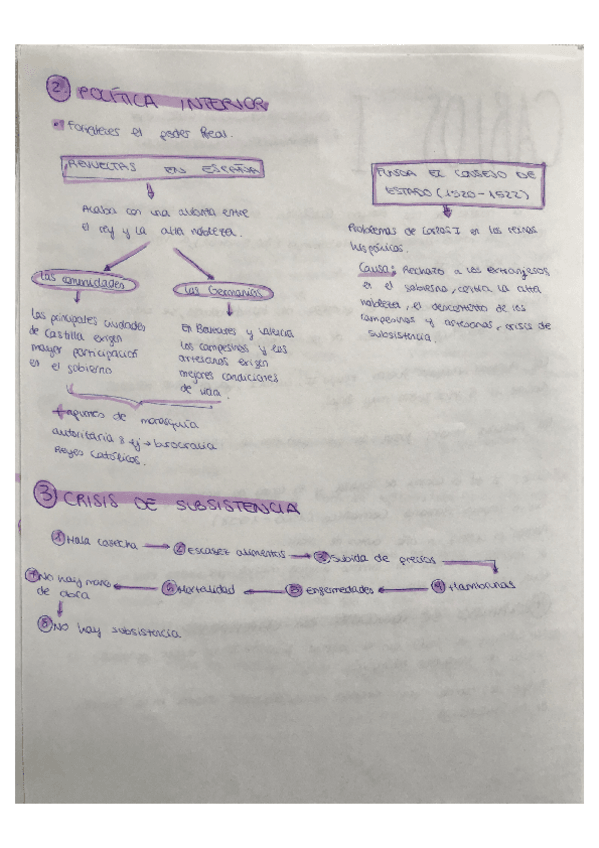 2 POLÍTICA INTERIOR
Fortalecer el poder Real.
REVUELTAS EN ESPAÑA
Acaba con una alianza entre
el rey y la alta nobleza.
Las comunidades
Las Germanías
Las principales ciudades
de Castilla exigen
mayor participación
en el gobierno
En Baleares y Valencia
los campesinos y los
artesanos exigen
mejores condiciones
de vida.
de monarquía
autoritaria: ej → burocracia
Reyes Católicos.
FUNDA EL CONSEJO DE
ESTADO (1520-1522)
Problemas de Carlos I en los reinos
hispánicos.
Causa: Rechazo a los extranjeros
en el gobierno, contra la alta
nobleza, el descontento de los
campesinos y artesanos, crisis de
subsistencia.
3 CRISIS DE SUBSISTENCIA
1 Mala cosecha → 2 Escasez alimentos → 3 Subida de precios
7 No hay mano de obra ← 6 Mortalidad ← 5 Enfermedades ← 4 Hambrunas
8 No hay subsistencia
CARLOS I